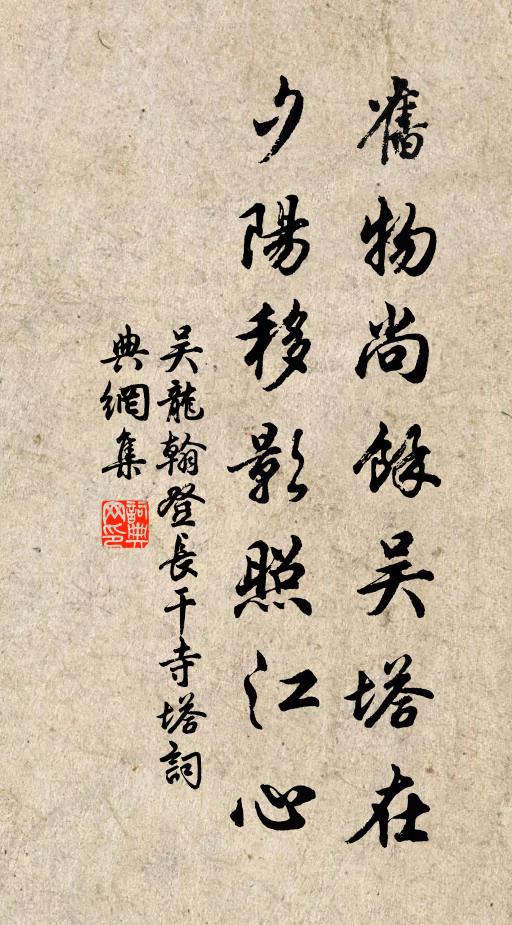 舊物尚餘吴塔在
夕陽移影照江心
吴龍翰登長干寺塔詞
典網集
詞典
网印